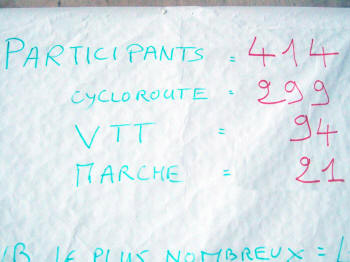 PARTICIPANTS = 414
CYCLOROUTE = 299
VTT = 94
MARCHE = 21
LE PLUS NOMBREUX =